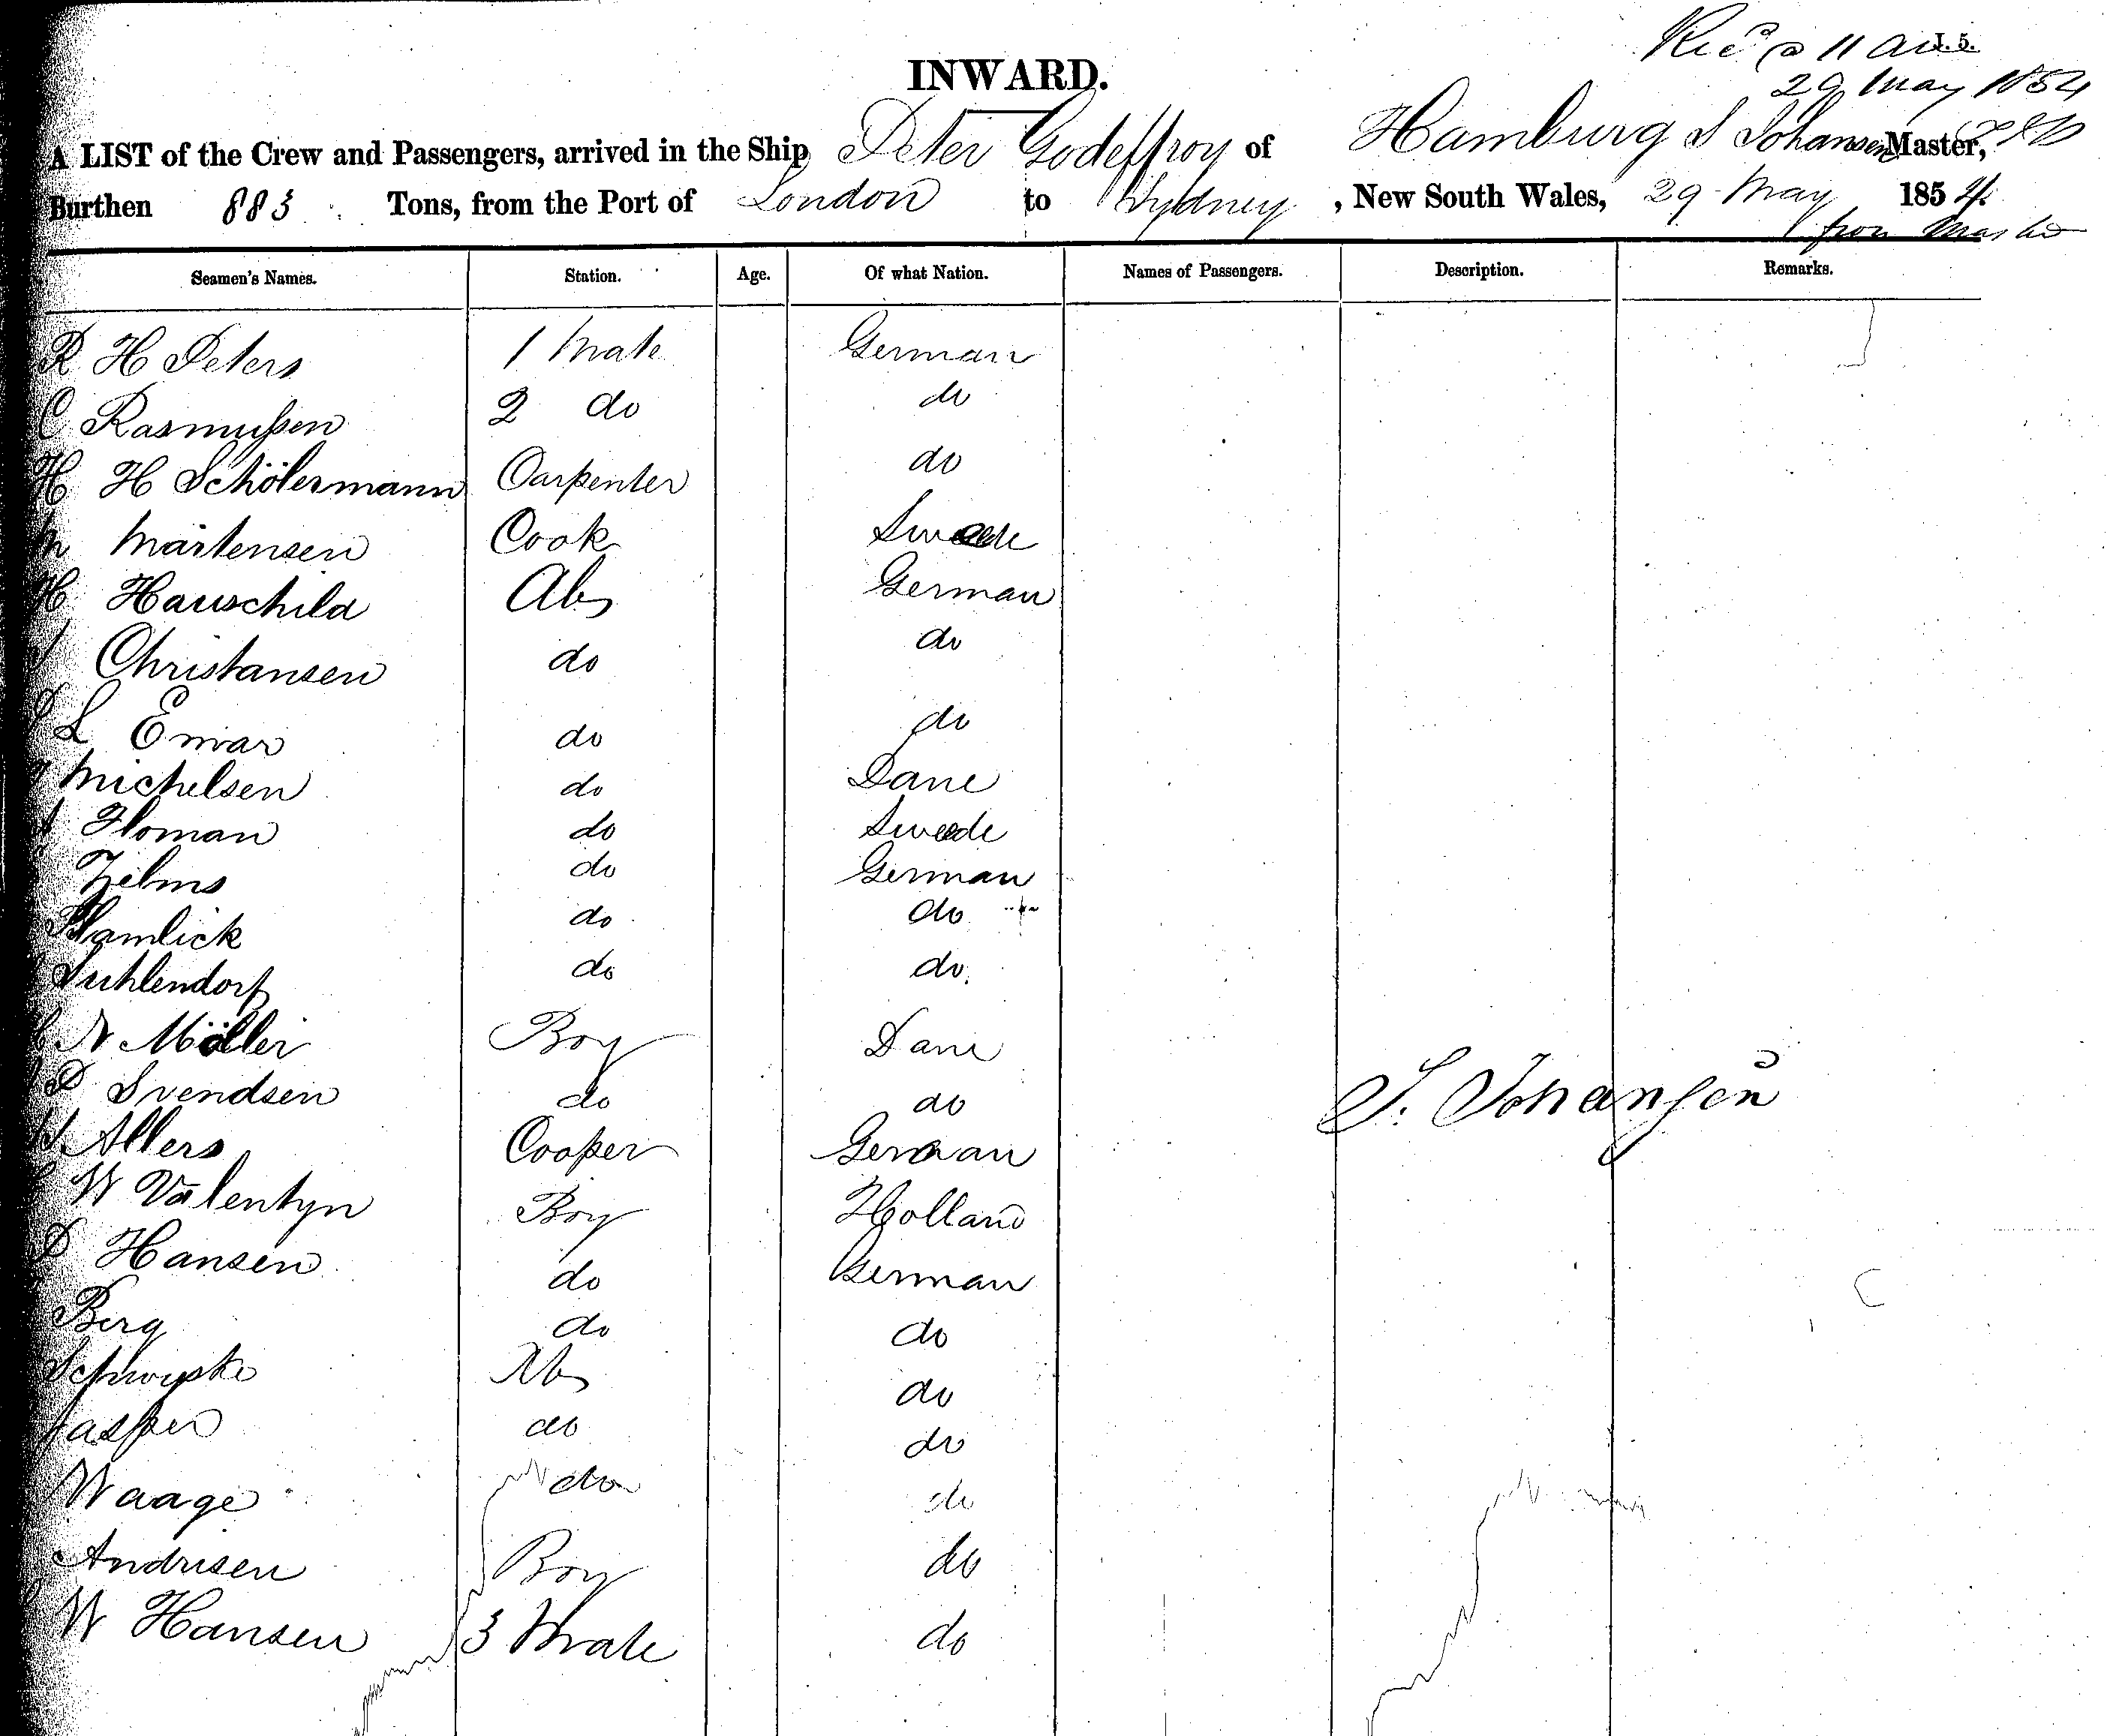 Recd @ 11 am
I. 5.
29 May 1854
INWARD.
A LIST of the Crew and Passengers, arrived in the Ship Peter Godeffroy of Hamburg S Johansen Master,
Burthen 883 Tons, from the Port of London to Sydney, New South Wales, 29 May 1854.
from Master
Seamen's Names. Station. Age. Of what Nation. Names of Passengers. Description. Remarks.
R H Peters 1 Mate German
C Rasmußen 2 do do
H H Schölermann Carpenter do
M Martensen Cook Swede
H Hauschild Ab German
Christansen do do
L Emar do do
Michelsen do Dane
Homan do Swede
Zelms do German
Hamlick do do
Suhlendorf do do
N Möller Boy Dane
P Svendsen do do
Allers Cooper German
W Valentyn Boy Holland
D Hansen do German
Berg do do
Ab do
Jasper do do
Waage do do
Andresen Boy do
W Hansen 3 Mate do
S. Johanſen